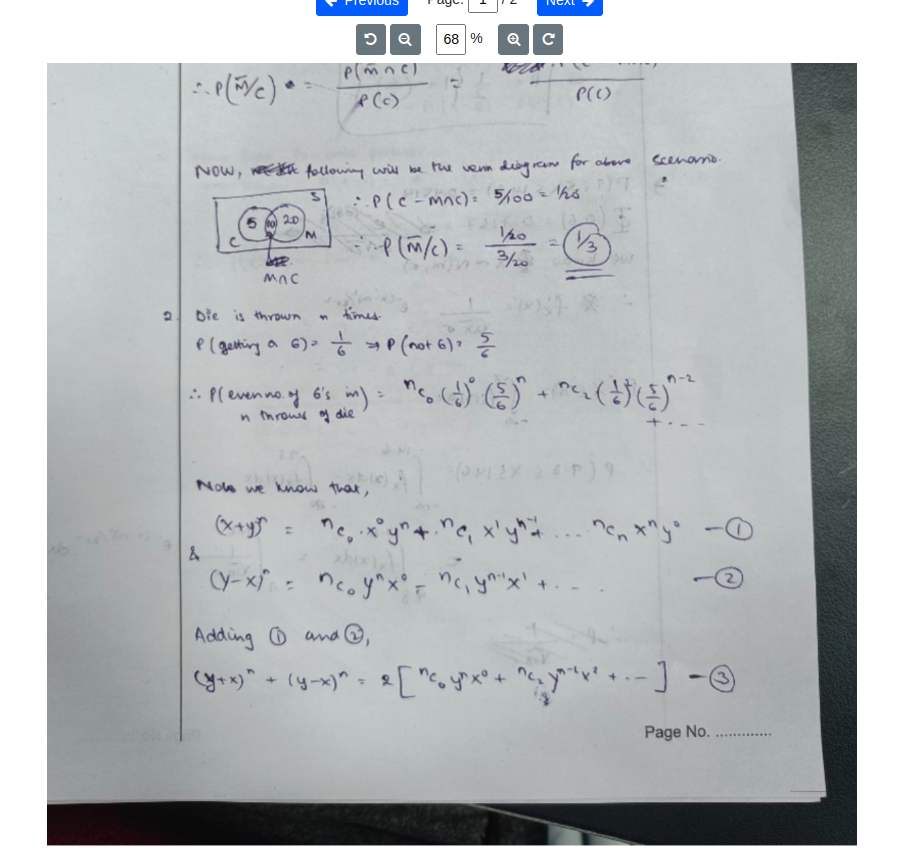 Previous Page: 1 / 2 Next
68 %
∴ P(M̅/C) = P(M̅∩C) / P(C) = / P(C)
NOW, following will be the venn diagram for above scenario.
S
5 10 20
C M
M∩C
∴ P(C - M∩C) = 5/100 = 1/20
∴ P(M̅/C) = (1/20) / (3/20) = 1/3
2. Die is thrown n times.
P(getting a 6) = 1/6 ⇒ P(not 6) = 5/6
∴ P(even no. of 6's in n throws of die) = ⁿC₀ (1/6)⁰ (5/6)ⁿ + ⁿC₂ (1/6)² (5/6)ⁿ⁻² + ...
Now we know that,
(x+y)ⁿ = ⁿC₀ · x⁰yⁿ + ⁿC₁ x¹yⁿ⁻¹ + .... ⁿCₙ xⁿy⁰ —①
&
(y-x)ⁿ = ⁿC₀ yⁿx⁰ - ⁿC₁ yⁿ⁻¹x¹ + ... . —②
Adding ① and ②,
(y+x)ⁿ + (y-x)ⁿ = 2[ⁿC₀ yⁿx⁰ + ⁿC₂ yⁿ⁻²x² + ...] —③
Page No. .............